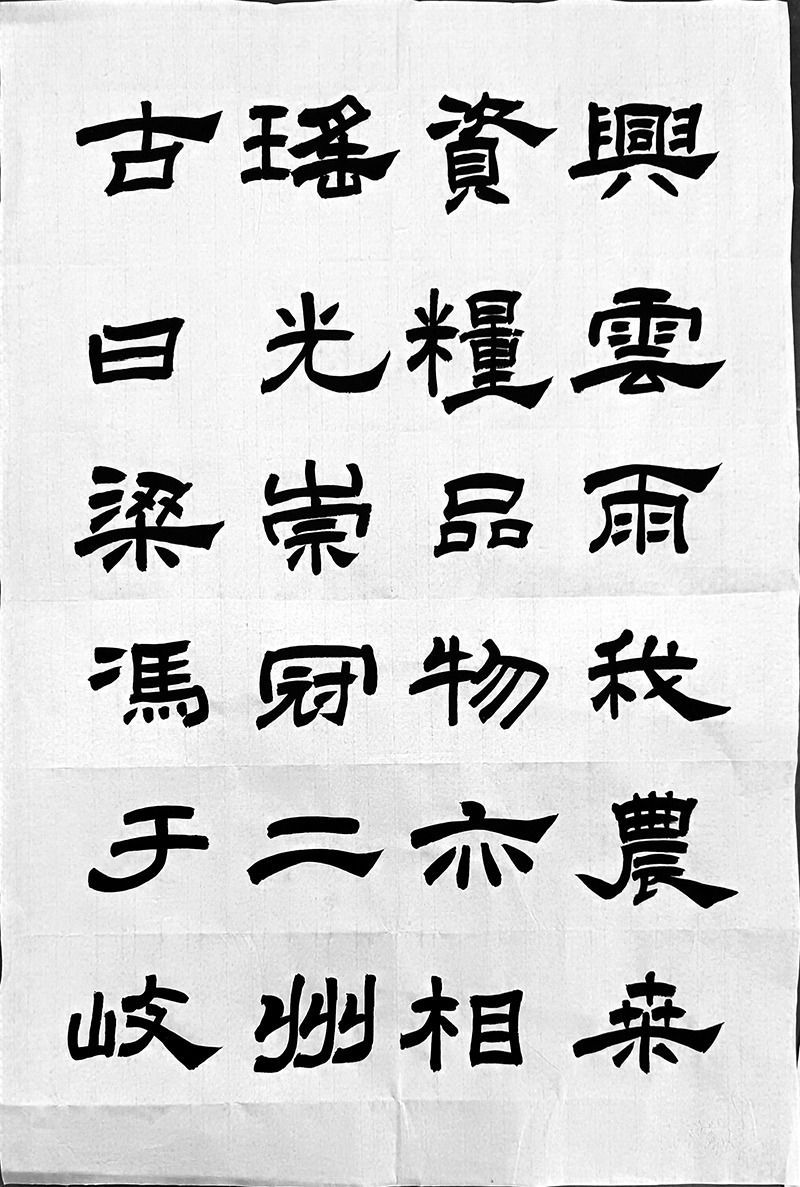 興雲雨我農桒
資糧品物亦相
瑤光崇冠二州
古曰梁馮于岐